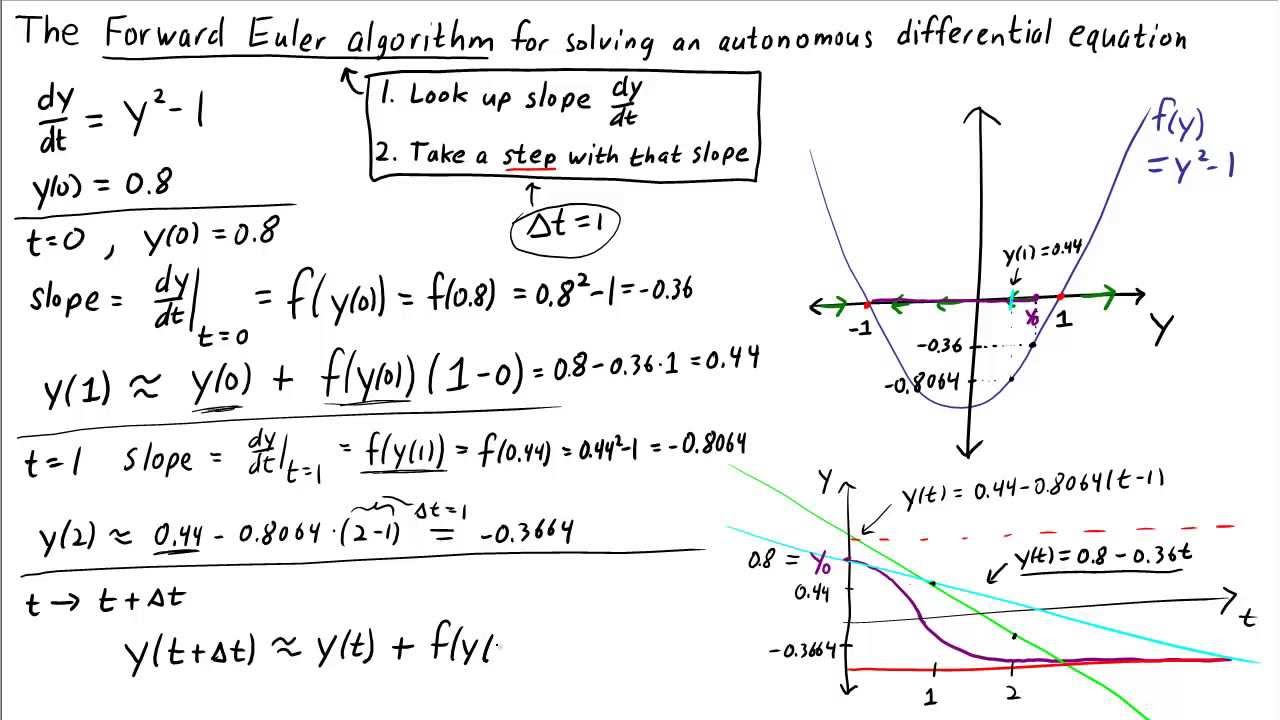 The Forward Euler algorithm for solving an autonomous differential equation
1. Look up slope dy/dt
2. Take a step with that slope
Δt = 1
dy/dt = y² - 1
y(0) = 0.8
t=0 , y(0) = 0.8
slope = dy/dt|t=0 = f(y(0)) = f(0.8) = 0.8² - 1 = -0.36
y(1) ≈ y(0) + f(y(0)) (1-0) = 0.8 - 0.36·1 = 0.44
t=1 slope = dy/dt|t=1 = f(y(1)) = f(0.44) = 0.44² - 1 = -0.8064
Δt=1
y(2) ≈ 0.44 - 0.8064·(2-1) = -0.3664
t → t + Δt
y(t+Δt) ≈ y(t) + f(y(
f(y)
= y² - 1
y(1) = 0.44
-1
y₀
1
y
-0.36
-0.8064
y
y(t) = 0.44 - 0.8064(t-1)
0.8 = y₀
y(t) = 0.8 - 0.36t
0.44
t
-0.3664
1
2